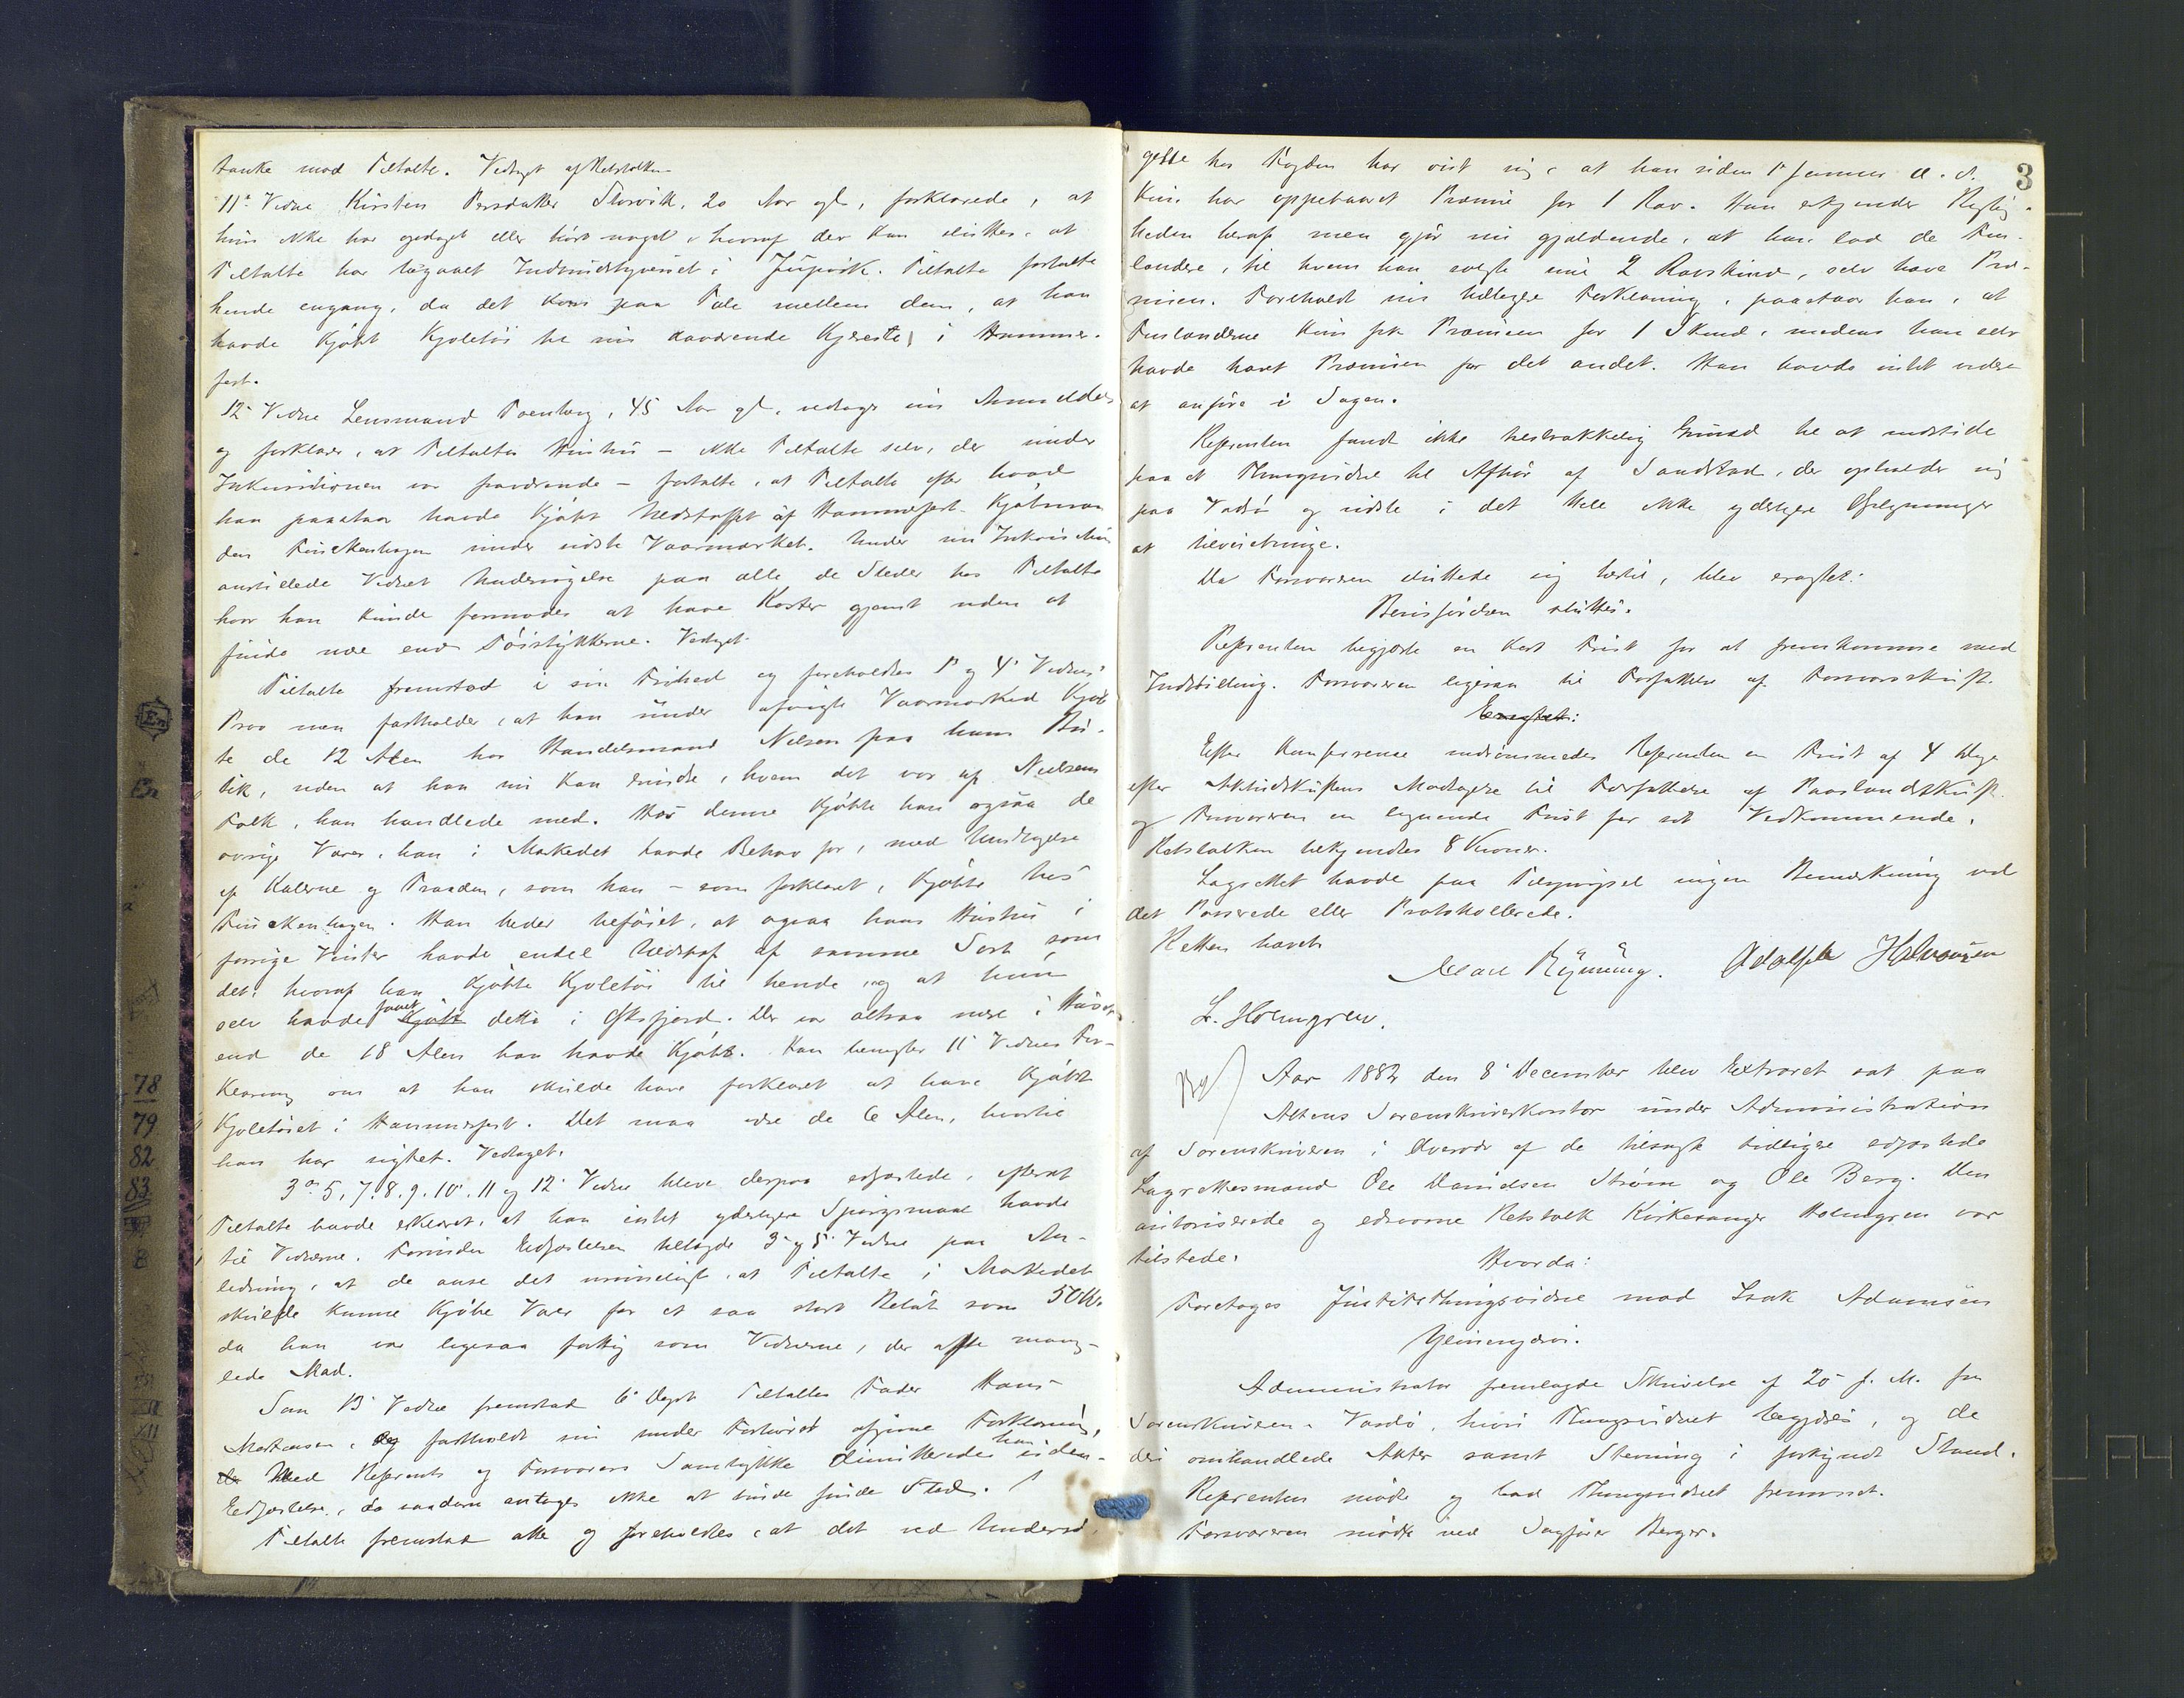 tanke mod Tiltalte. Vedtaget af Retstolken
11te Vidne Kirsten Persdatter Storvik, 20 Aar gl, forklarede, at
hun ikke har opdaget eller hørt noget, hvoraf der kan sluttes, at
Tiltalte har begaaet Indbrudstyveriet i Jupvik. Tiltalte fortalte
hende engang, da det kom paa Tale mellem dem, at han
havde kjøbt Kjoletøi til sin daværende Kjæreste i Hammer-
fest.
12te Vidne Lensmand Formberg, 45 Aar gl, vedtager sin Anmeldelse
og forklarer, at Tiltaltes Hustru – ikke Tiltalte selv, der under
Inkvisitionen var fraværende – fortalte, at Tiltalte efter hvad
han paastaar havde kjøbt Uldstoffet af Hammerfest-Kjøbman-
den Finckenhagen under sidste Vaarmarked. Under sin Inkvisition
anstillede Vidnet Undersøgelse paa alle de Steder hos Tiltalte
hvor han kunde formodes at have Koster gjemt uden at
finde mere end Tøistykkerne. Vedtaget.
Tiltalte fremstod i sin Frihed og foreholdtes 1ste og 4de Vidnes
Prov men fastholder, at han under afvigte Vaarmarked kjøb-
te de 12 Alen hos Handelsmand Nilsen paa hans Bu-
tik, uden at han nu kan huske, hvem det var af Nielsens
Folk, han handlede med. Hos denne kjøbte han ogsaa de
øvrige Varer, han i Markedet havde Behov for, med Undtagelse
af Kulerne og Traaden, som han – som forklaret, kjøbte hos
Finckenhagen. Han beder tilføiet, at ogsaa hans Hustru i
forrige Vinter havde endel Uldstof af samme Sort som
det, hvoraf han kjøbte Kjoletøi til hende, og at hun
selv havde faaet kjøbt dette i Øksfjord. Der var altsaa mere i Huset
end de 18 Alen han havde kjøbt. Han benegter 11te Vidnes For-
klaring om at han skulde have forklaret at have kjøbt
Kjoletøiet i Hammerfest. Det maa være de 6 Alen, hvortil
han har sigtet. Vedtaget.
3die 5. 7. 8. 9. 10. 11 og 12te Vidne bleve derpaa edfæstede, efterat
Tiltalte havde erklæret, at han intet yderligere Spørgsmaal havde
til Vidnerne. Forinden Edfæstelsen tilføiede 3die og 5te Vidne paa An-
ledning, at de anse det umuligt, at Tiltalte i Markedet
skulde kunne kjøbe Varer for et saa stort Beløb som 50 Kr.
da han var ligesaa fattig som Vidnerne, der ofte mang-
lede Mad.
Som 13de Vidne fremstod Tiltaltes Fader Hans
Mortensen, og fastholdt sin under Forhøret afgivne Forklaring,
Med Referents og Forsvarers Samtykke dimitteredes han uden
Eedfæstelse, da saadan antages ikke at burde finde Sted.
Tiltalte fremstod atter og foreholdtes, at det ved Undersø-
3
gelse hos Fogden har vist sig, at han siden 1ste Januar d. A.
kun har oppebaaret Præmie for 1 Ræv. Han erkjender Rigtig-
heden heraf men gjør nu gjældende, at han lod de Fin-
lændere, til hvem han solgte sine 2 Ræveskind, selv hæve Præ-
mien. Foreholdt sin tidligere Forklaring, paastaar han, at
Finlænderne kun fik Præmien for 1 Skind, medens han selv
havde hævet Præmien for det andet. Han havde intet videre
at anføre i Sagen.
Referenten fandt ikke tilstrækkelig Grund til at udstede
paa et Thingsvidne til Afhør af Sandstad, der opholder sig
paa Vadsø og vidste i det Hele ikke yderligere Oplysninger
at tilveiebringe.
Da Forsvareren sluttede sig hertil, blev eragtet:
Bevisførelsen sluttes.
Referenten begjærte en kort Frist for at fremkomme med
Indstilling. Forsvareren ligesaa til Forfattelse af Forsvarsskrift.
Eragtet:
Efter Konference indrømmedes Referenten en Frist af 4 Dage
efter Aktudskriftens Modtagelse til Forfattelse af Paastandsskrift
og Forsvareren en lignende Frist for sit Vedkommende.
Retstolken tilkjendtes 8 Kroner.
Lagrettet havde paa Tilspørgsel ingen Bemærkning ved
det Passerede eller Protokollerede.
Retten hævet
Rynning. Adolph Halvorsen
L. Holmgren.
Aar 1882 den 8de December blev Extraret sat paa
Altens Sorenskriverkontor under Administration
af Sorenskriveren i Overvær af de tilsagte tidligere edfæstede
Lagrettesmænd Ole Danielsen Strøm og Ole Berg. Den
autoriserede og edsvorne Retstolk Kirkesanger Holmgren var
tilstede.
Hvorda:
Foretoges Justitsthingsvidne mod Isak Adamsen
Administrator fremlagde Skrivelse af 20de f. M. fra
Sorenskriveren i Vardø, hvori Thingsvidnet begjæres, og de
deri omhandlede Akter samt Stevning i forkyndt Stand.
Referenten mødte og bad Thingsvidnet fremmet.
Forsvareren mødte ved Sagfører Berger.